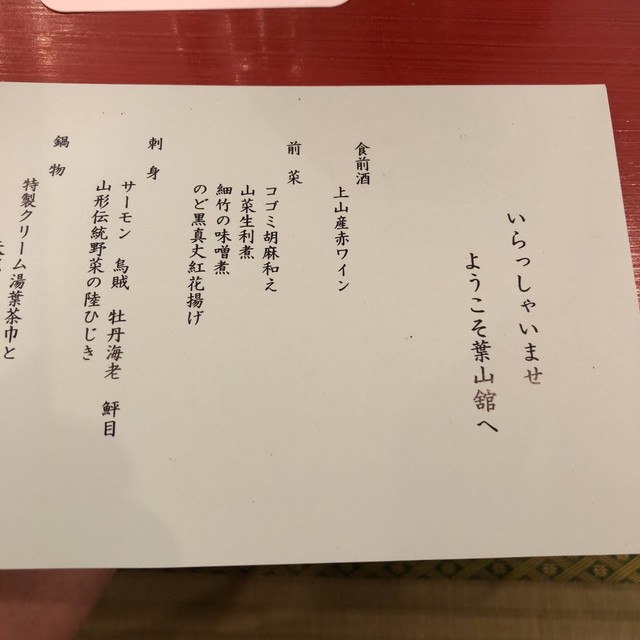 いらっしゃいませ
ようこそ葉山舘へ
食前酒
上山産赤ワイン
前菜
コゴミ胡麻和え
山菜生利煮
細竹の味噌煮
のど黒真丈紅花揚げ
刺身
サーモン 烏賊 牡丹海老 鮃目
山形伝統野菜の陸ひじき
鍋物
特製クリーム湯葉茶巾と